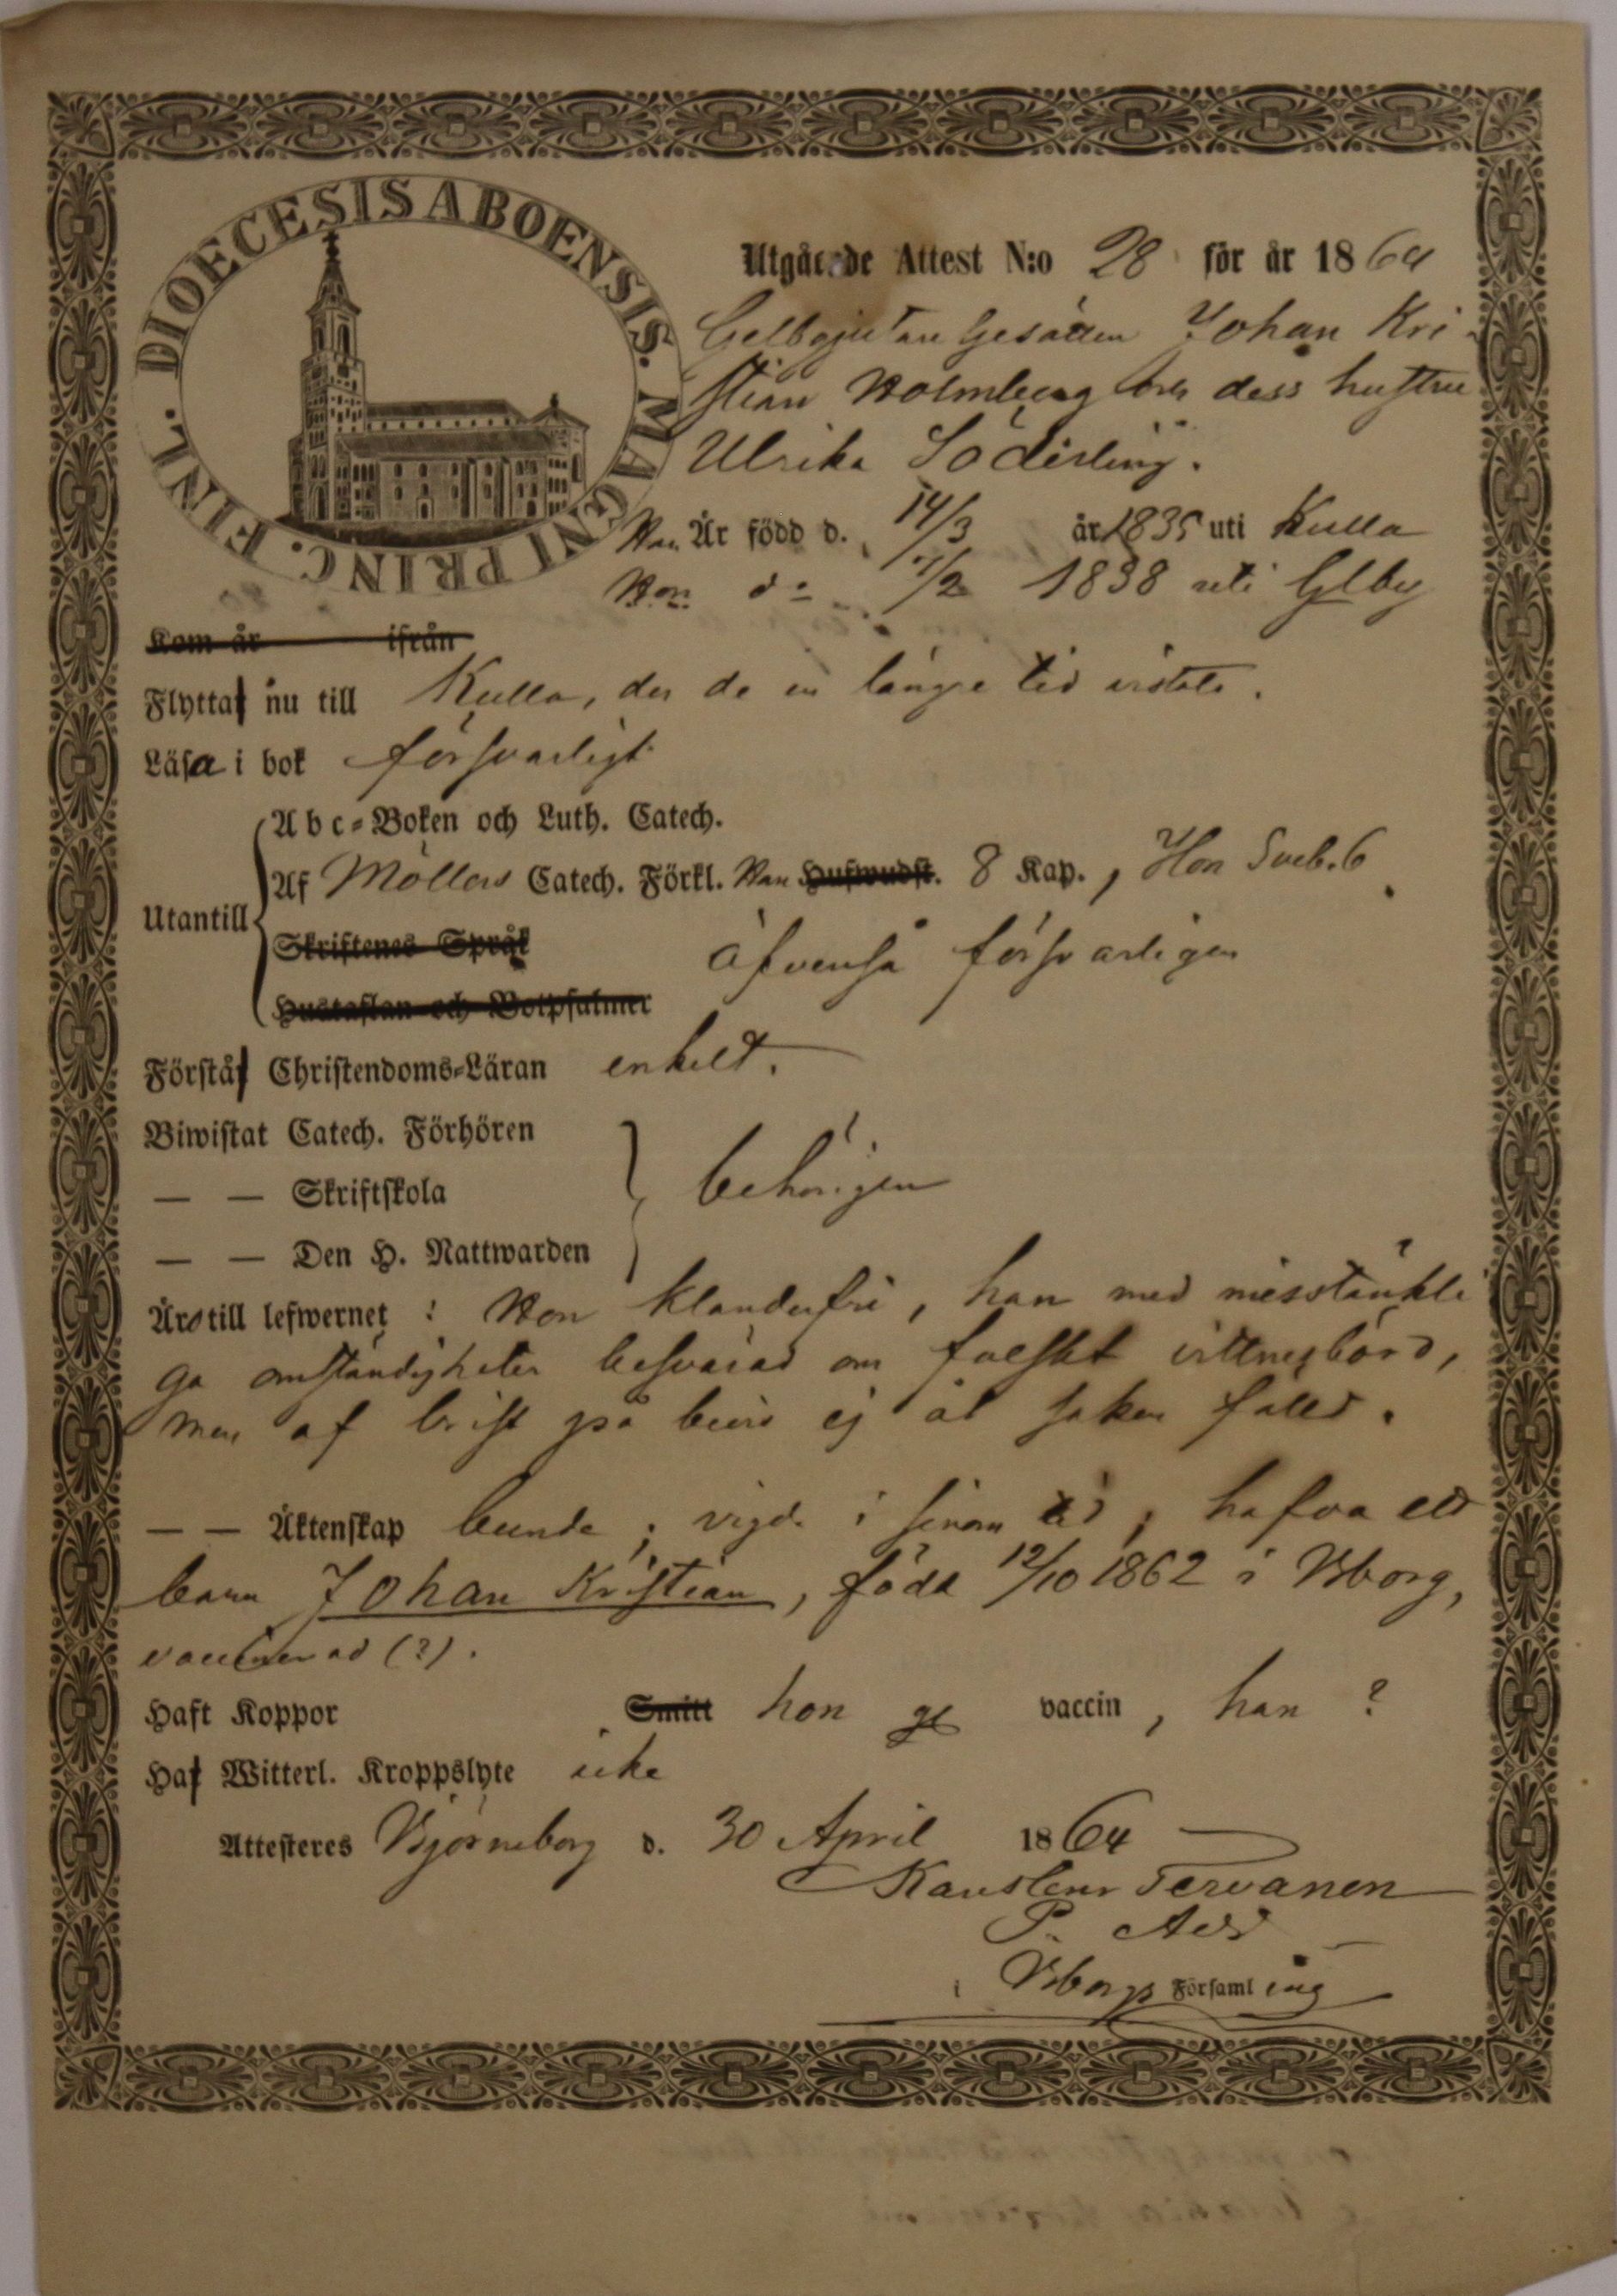 DIOECESIS ABOENSIS. MAGNI PRINC. FINL.
Utgående Attest N:o 28 för år 1864
Gelbgjutare Gesällen Johan Kri-
stian Holmberg och dess hustru
Ulrika Söderling.
Han Är född d. 14/3 år 1835 uti Kulla
Hon d:o /2 1838 uti Glby
Kom år ifrån
Flytta nu till Kulla, der de en längre tid vistats.
Läsa i bok försvarligt
Abc-Boken och Luth. Catech.
Af Möllers Catech. Förkl. Han Hufwudst. 8 Kap., Hon Sveb. 6.
Utantill
Skriftenes Språk
äfvenså försvarligen
Hustaflan och Botpsalmer
Förstå Christendoms-Läran enkelt.
Biwistat Catech. Förhören
— — Skriftskola behörigen
— — Den H. Nattwarden
Äro till lefwernet: Hon klanderfri, han med misstänkli-
ga omständigheter besvärad om falskt vittnesbörd,
men af brist på bevis ej åt saken fälld.
— — Äktenskap bundne; vigde i sinom tid; hafva ett
barn Johan Kristian, född 12/10 1862 i Bborg,
vaccinerad (?).
Haft Koppor Smitt hon vaccin, han ?
Ha Witterl. Kroppslyte icke
Attesteres Björneborg d. 30 April 1864
Tervanen
P. Adj
i Bborgs Församling